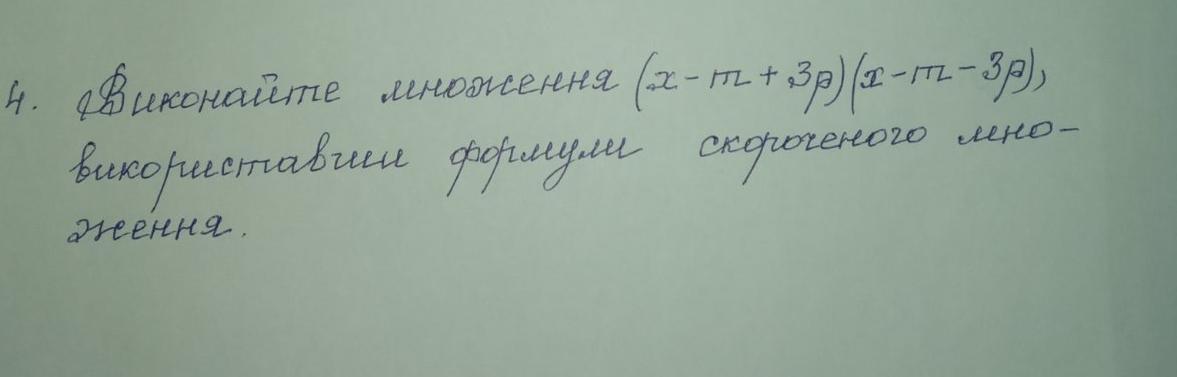 4. Виконайте множення (x - m + 3p)(x - m - 3p),
використавши формули скороченого мно-
ження.